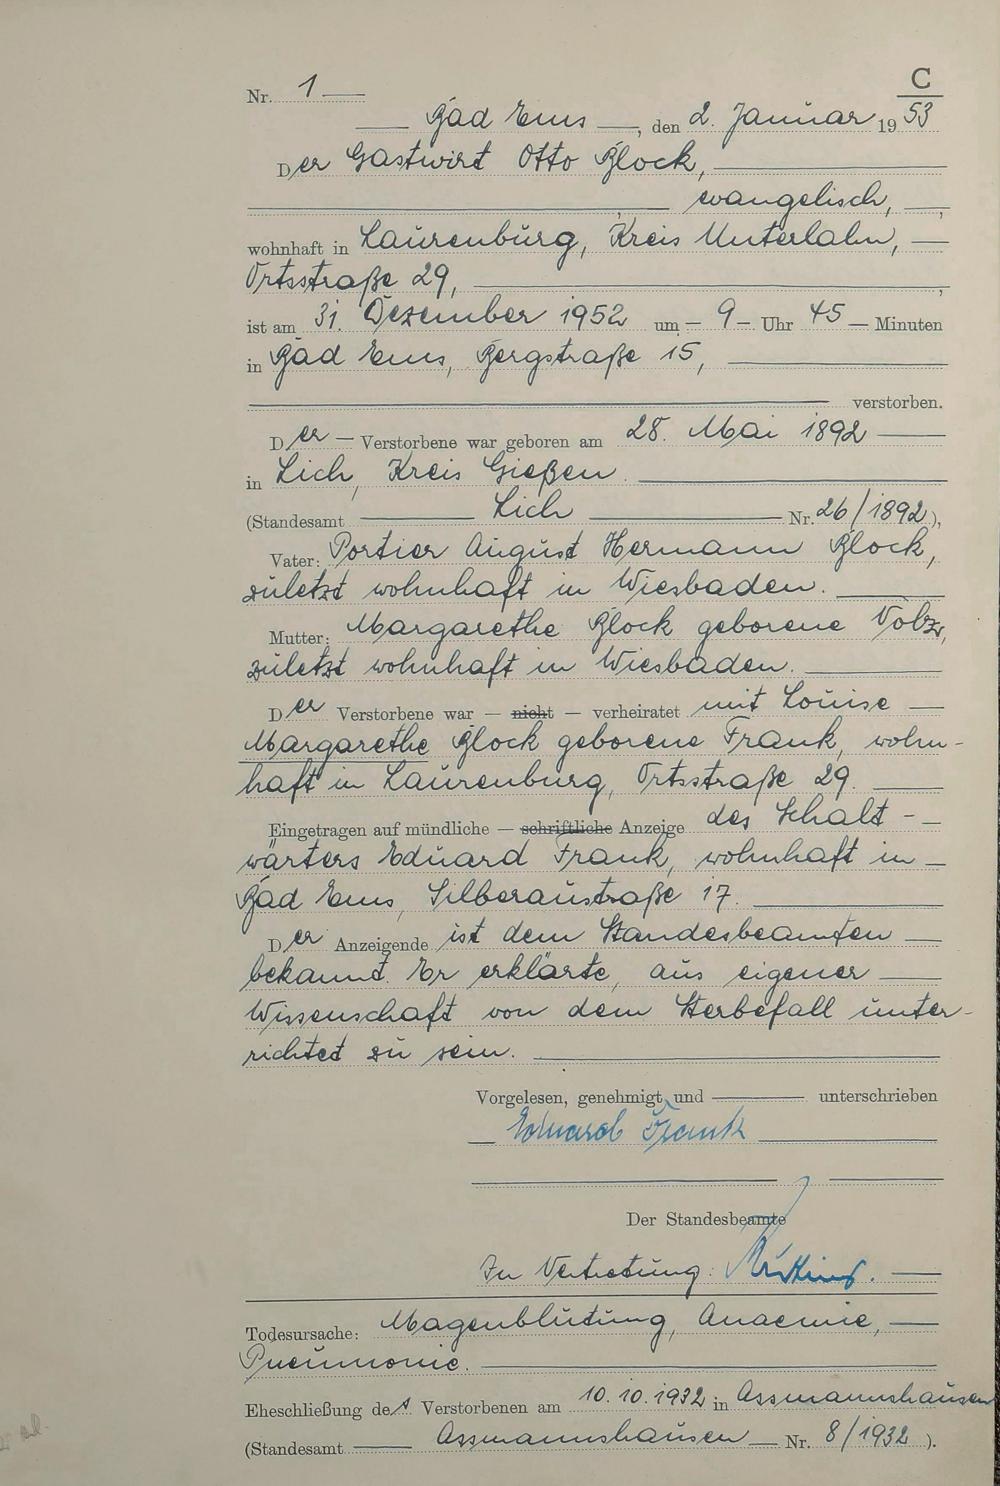 C
Nr. 1
Bad Ems, den 2. Januar 1953
Der Gastwirt Otto Block,
evangelisch,
wohnhaft in Laurenburg, Kreis Unterlahn,
Ortsstraße 29,
ist am 31. Dezember 1952 um – 9 – Uhr 45 – Minuten
in Bad Ems, Bergstraße 15,
verstorben.
Der – Verstorbene war geboren am 28. Mai 1892
in Lich, Kreis Gießen.
(Standesamt Lich Nr. 26/1892),
Vater: Portier August Hermann Block,
zuletzt wohnhaft in Wiesbaden.
Mutter: Margarethe Block geborene Volz,
zuletzt wohnhaft in Wiesbaden.
Der Verstorbene war – nicht – verheiratet mit Louise
Margarethe Block geborene Frank, wohn-
haft in Laurenburg, Ortsstraße 29.
Eingetragen auf mündliche – schriftliche Anzeige des Schalt-
wärters Eduard Frank, wohnhaft in
Bad Ems, Silberaustraße 17.
Der Anzeigende ist dem Standesbeamten
bekannt. Er erklärte, aus eigener
Wissenschaft von dem Sterbefall unter-
richtet zu sein.
Vorgelesen, genehmigt und unterschrieben
Eduard Frank
Der Standesbeamte
In Vertretung:
Todesursache: Magenblutung, Anaemie,
Pneumonie.
Eheschließung des Verstorbenen am 10.10.1932 in Assmannshausen
(Standesamt Assmannshausen Nr. 8/1932).